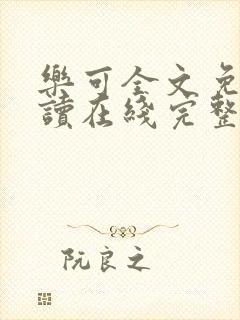 樂可全文免
讀在綫完整
阮良之